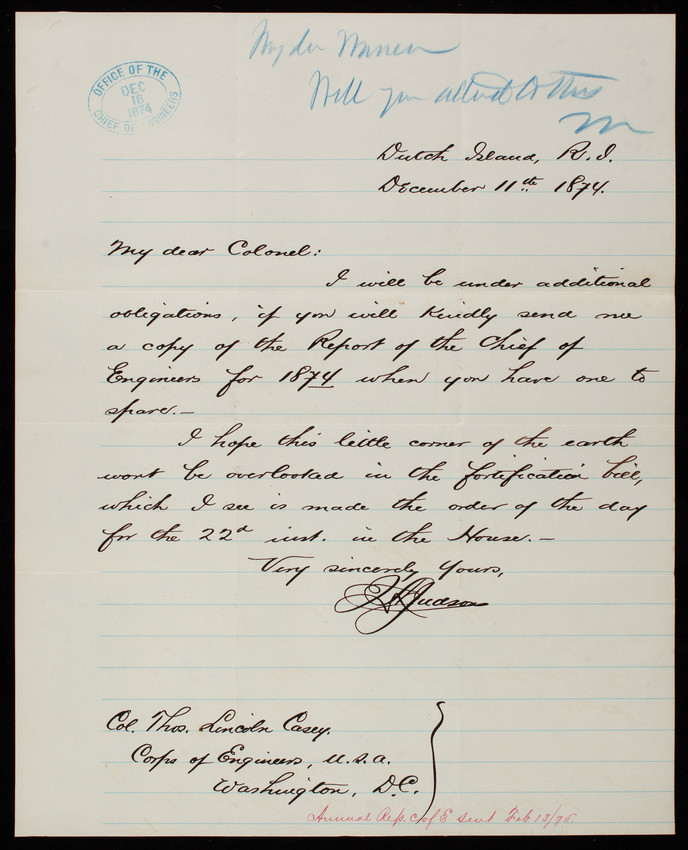 OFFICE OF THE
DEC
16
1874
CHIEF OF ENGINEERS
My dr
Will you attend to this
Dutch Island, R.I.
December 11th 1874.
My dear Colonel:
I will be under additional
obligations, if you will kindly send me
a copy of the Report of the Chief of
Engineers for 1874 when you have one to
spare.—
I hope this little corner of the earth
wont be overlooked in the fortification bill,
which I see is made the order of the day
for the 22d inst. in the House.—
Very sincerely Yours,
Judson
Col. Thos. Lincoln Casey.
Corps of Engineers, U.S.A.
Washington, D.C.
Annual Rep. C of E sent Feb 13/75.